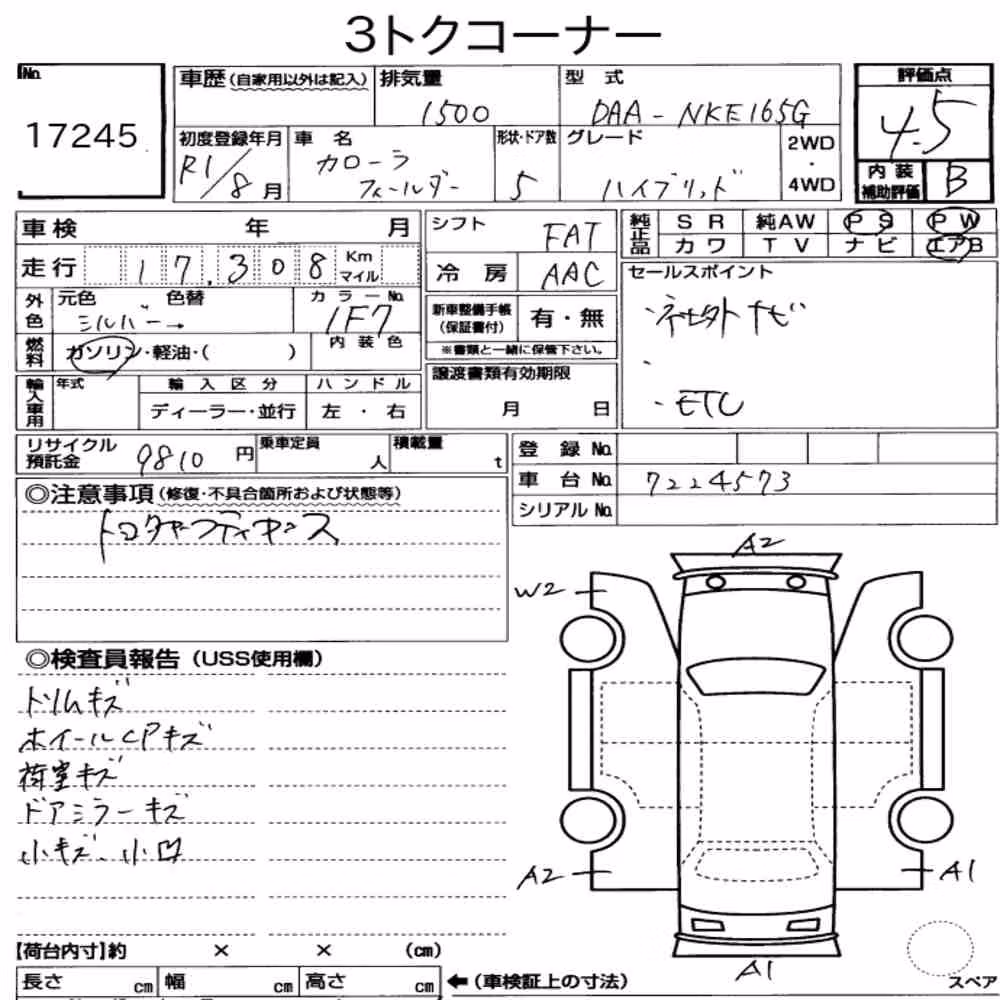 3トクコーナー
No.
17245
車歴 (自家用以外は記入) 排気量 型 式 評価点
1500 DAA-NKE165G 4.5
初度登録年月 車 名 形状・ドア数 グレード 2WD・4WD
R1/8月 カローラ フィールダー 5 ハイブリッド
内 装 補助評価 B
車検 年 月 シフト FAT
純正品 SR 純AW PS PW
カワ TV ナビ エアB
走行 17,308 Km マイル 冷 房 AAC
セールスポイント
外色 元色 色替 カラーNo.
シルバー→ 1F7
新車整備手帳 (保証書付) 有・無
※書類と一緒に保管下さい。
・ネビ外ナビ
・
・ETC
燃料 ガソリン・軽油・( ) 内 装 色
輸入車用 年式 輸 入 区 分 ハ ン ド ル
ディーラー・並行 左 ・ 右
譲渡書類有効期限
月 日
リサイクル預託金 9810 円 乗車定員 人 積載量 t
登 録 No.
車 台 No. 7224573
シリアル No.
◎注意事項 (修復・不具合箇所および状態等)
トヨタセーフティセンス
A2
W2
◎検査員報告 (USS使用欄)
トリムキズ
ホイールCPキズ
荷室キズ
ドアミラーキズ
小キズ、小凹
A2
A1
A1
【荷台内寸】約 × × (cm)
長さ cm 幅 cm 高さ cm
←(車検証上の寸法)
スペア